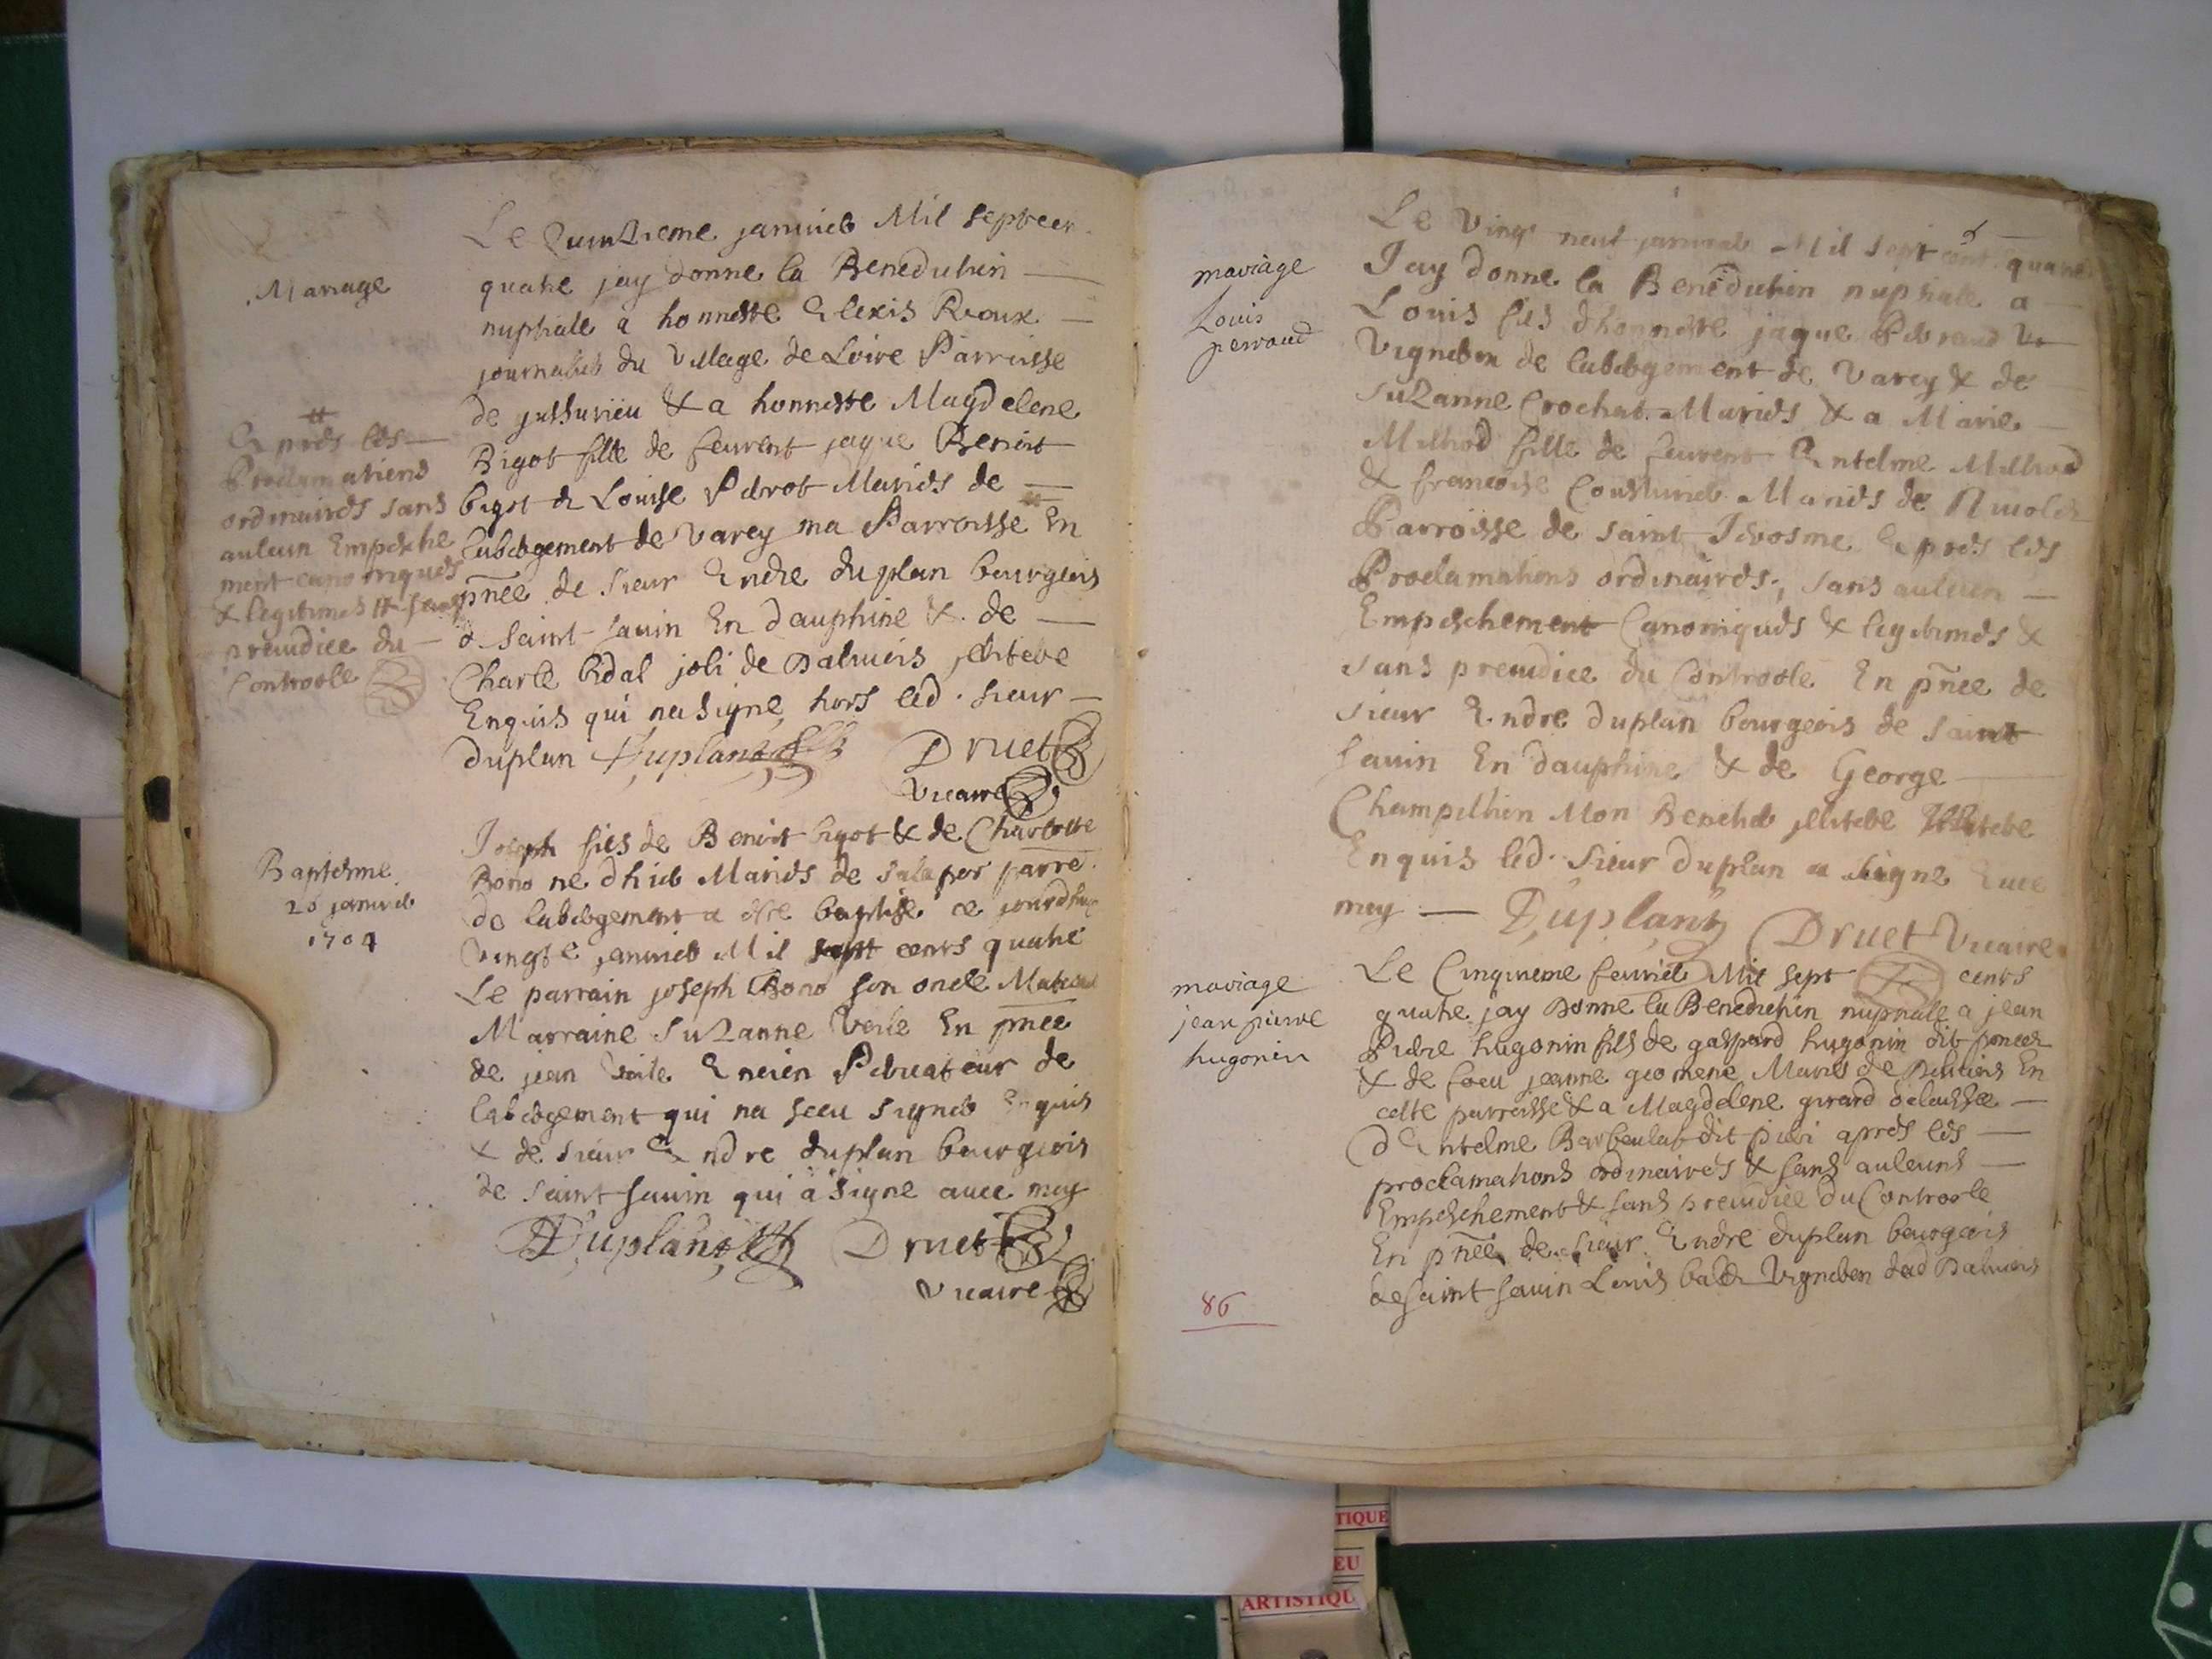 Mariage
Le quinzieme janvier Mil septcen
quatre jay donne la Benediction
nuptiale a honneste Alexis Rioux
journalier du village de Loire Parroisse
de jussurieu & a honneste Magdelene
Bigot fille de feurent jaque Benoit
bigot & Louise Perrot Mariés de
labergement de varey ma Parroisse # En
pñce de sieur Andre duplan bourgeois
d saint sauin En dauphine & de
Charle bidal joli de Balmeis jllitere
Enquis qui na signe hors led. sieur
duplan Duplant Druet
vicaire
#
Apres les
Proclamations
ordinaires sans
auleun Empeche
ment canoniques
& legitimes # sans
preiudice du
Controole
Baptesme
20 janvier
1704
Joseph fils de Benoit bigot & de Charlotte
Bono ne dhier Mariés de parre.
de labergement a este baptise ce jourdhuy
vingte janvier Mil sept cents quatre
Le parrain joseph Bono son oncle
Marraine Suzanne En pñce
de jean Ancien de
labergement qui na sceu signer Enquis
& de sieur Andre duplan bourgeois
de saint sauin qui a signe auec moy
Duplant Druet
vicaire
mariage
Louis
perraud
Le vingt neuf janvier Mil sept cent quatre
Jay donne la Benediction nuptiale a
Louis fils dhonneste jaque Perraud
Vigneron de labergement de varey & de
Suzanne Crochat Mariés & a Marie
Milliod fille de feurent Antelme Milliod
& francoise Cousturier Mariés de
Parroisse de saint Jerosme Apres les
Proclamations ordinaires, sans auleun
Empeschement Canoniques & legitimes &
sans preiudice du Controole En pñce de
sieur Andre duplan bourgeois de saint
sauin En dauphine & de George
Champillion Mon jllitere
Enquis led. sieur duplan a signe Auec
moy Duplant Druet vicaire
mariage
jean pierre
hugonin
Le Cinquieme feurier Mil sept cents
quatre jay Donne la Benediction nuptiale a jean
Pierre hugonin fils de gaspard hugonin dit poncet
& de feu jeanne Mariés de En
cette parroisse & a Magdelene girard delaissee
d Antelme dit apres les
proclamations ordinaires & sans auleuns
Empeschement & sans preiudice du Controole
En pñce de sieur Andre duplan bourgeois
de saint sauin Louis Vigneron dud Balmeis
86
TIQUE
EU
ARTISTIQU